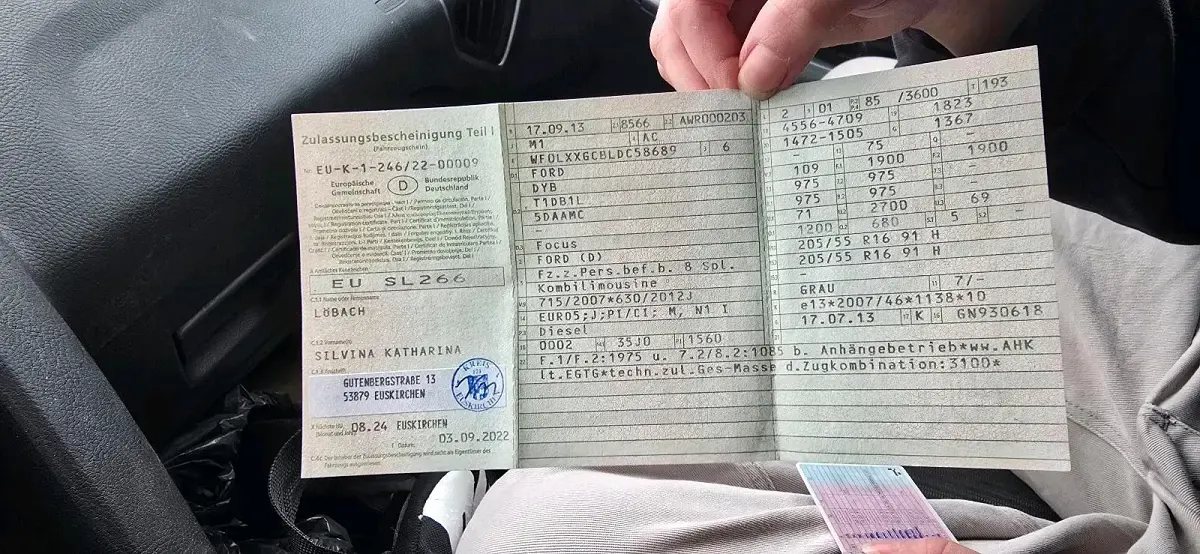 Zulassungsbescheinigung Teil I
(Fahrzeugschein)
Nr. EU-K-1-246/22-00009
Europäische Gemeinschaft
D
Bundesrepublik Deutschland
EU SL266
C.1.1 Name oder Firmenname
LÖBACH
C.1.2 Vorname(n)
SILVINA KATHARINA
GUTENBERGSTRAßE 13
53879 EUSKIRCHEN
KREIS
EUSKIRCHEN
08.24 EUSKIRCHEN
Datum:
03.09.2022
17.09.13 8566 AWR000203
M1 AC
WF0LXXGCBLDC58689 6
FORD
DYB
T1DB1L
5DAAMC
–
Focus
FORD (D)
Fz.z.Pers.bef.b. 8 Spl.
Kombilimousine
715/2007*630/2012J
EURO5;J;PI/CI; M, N1 I
Diesel
0002 35J0 1560
2 01 85 /3600 193
4556-4709 1823
1472-1505 1367
– 75 –
109 1900 1900
975 975 –
975 975 –
71 2700 69
1200 680 5 –
205/55 R16 91 H
205/55 R16 91 H
–
GRAU 7/–
e13*2007/46*1138*10
17.07.13 K GN930618
F.1/F.2:1975 u. 7.2/8.2:1085 b. Anhängebetrieb*ww.AHK
lt.EGTG*techn.zul.Ges-Masse d.Zugkombination:3100*